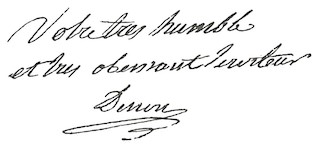 Votre tres humble
et tres obeissant serviteur
Denon